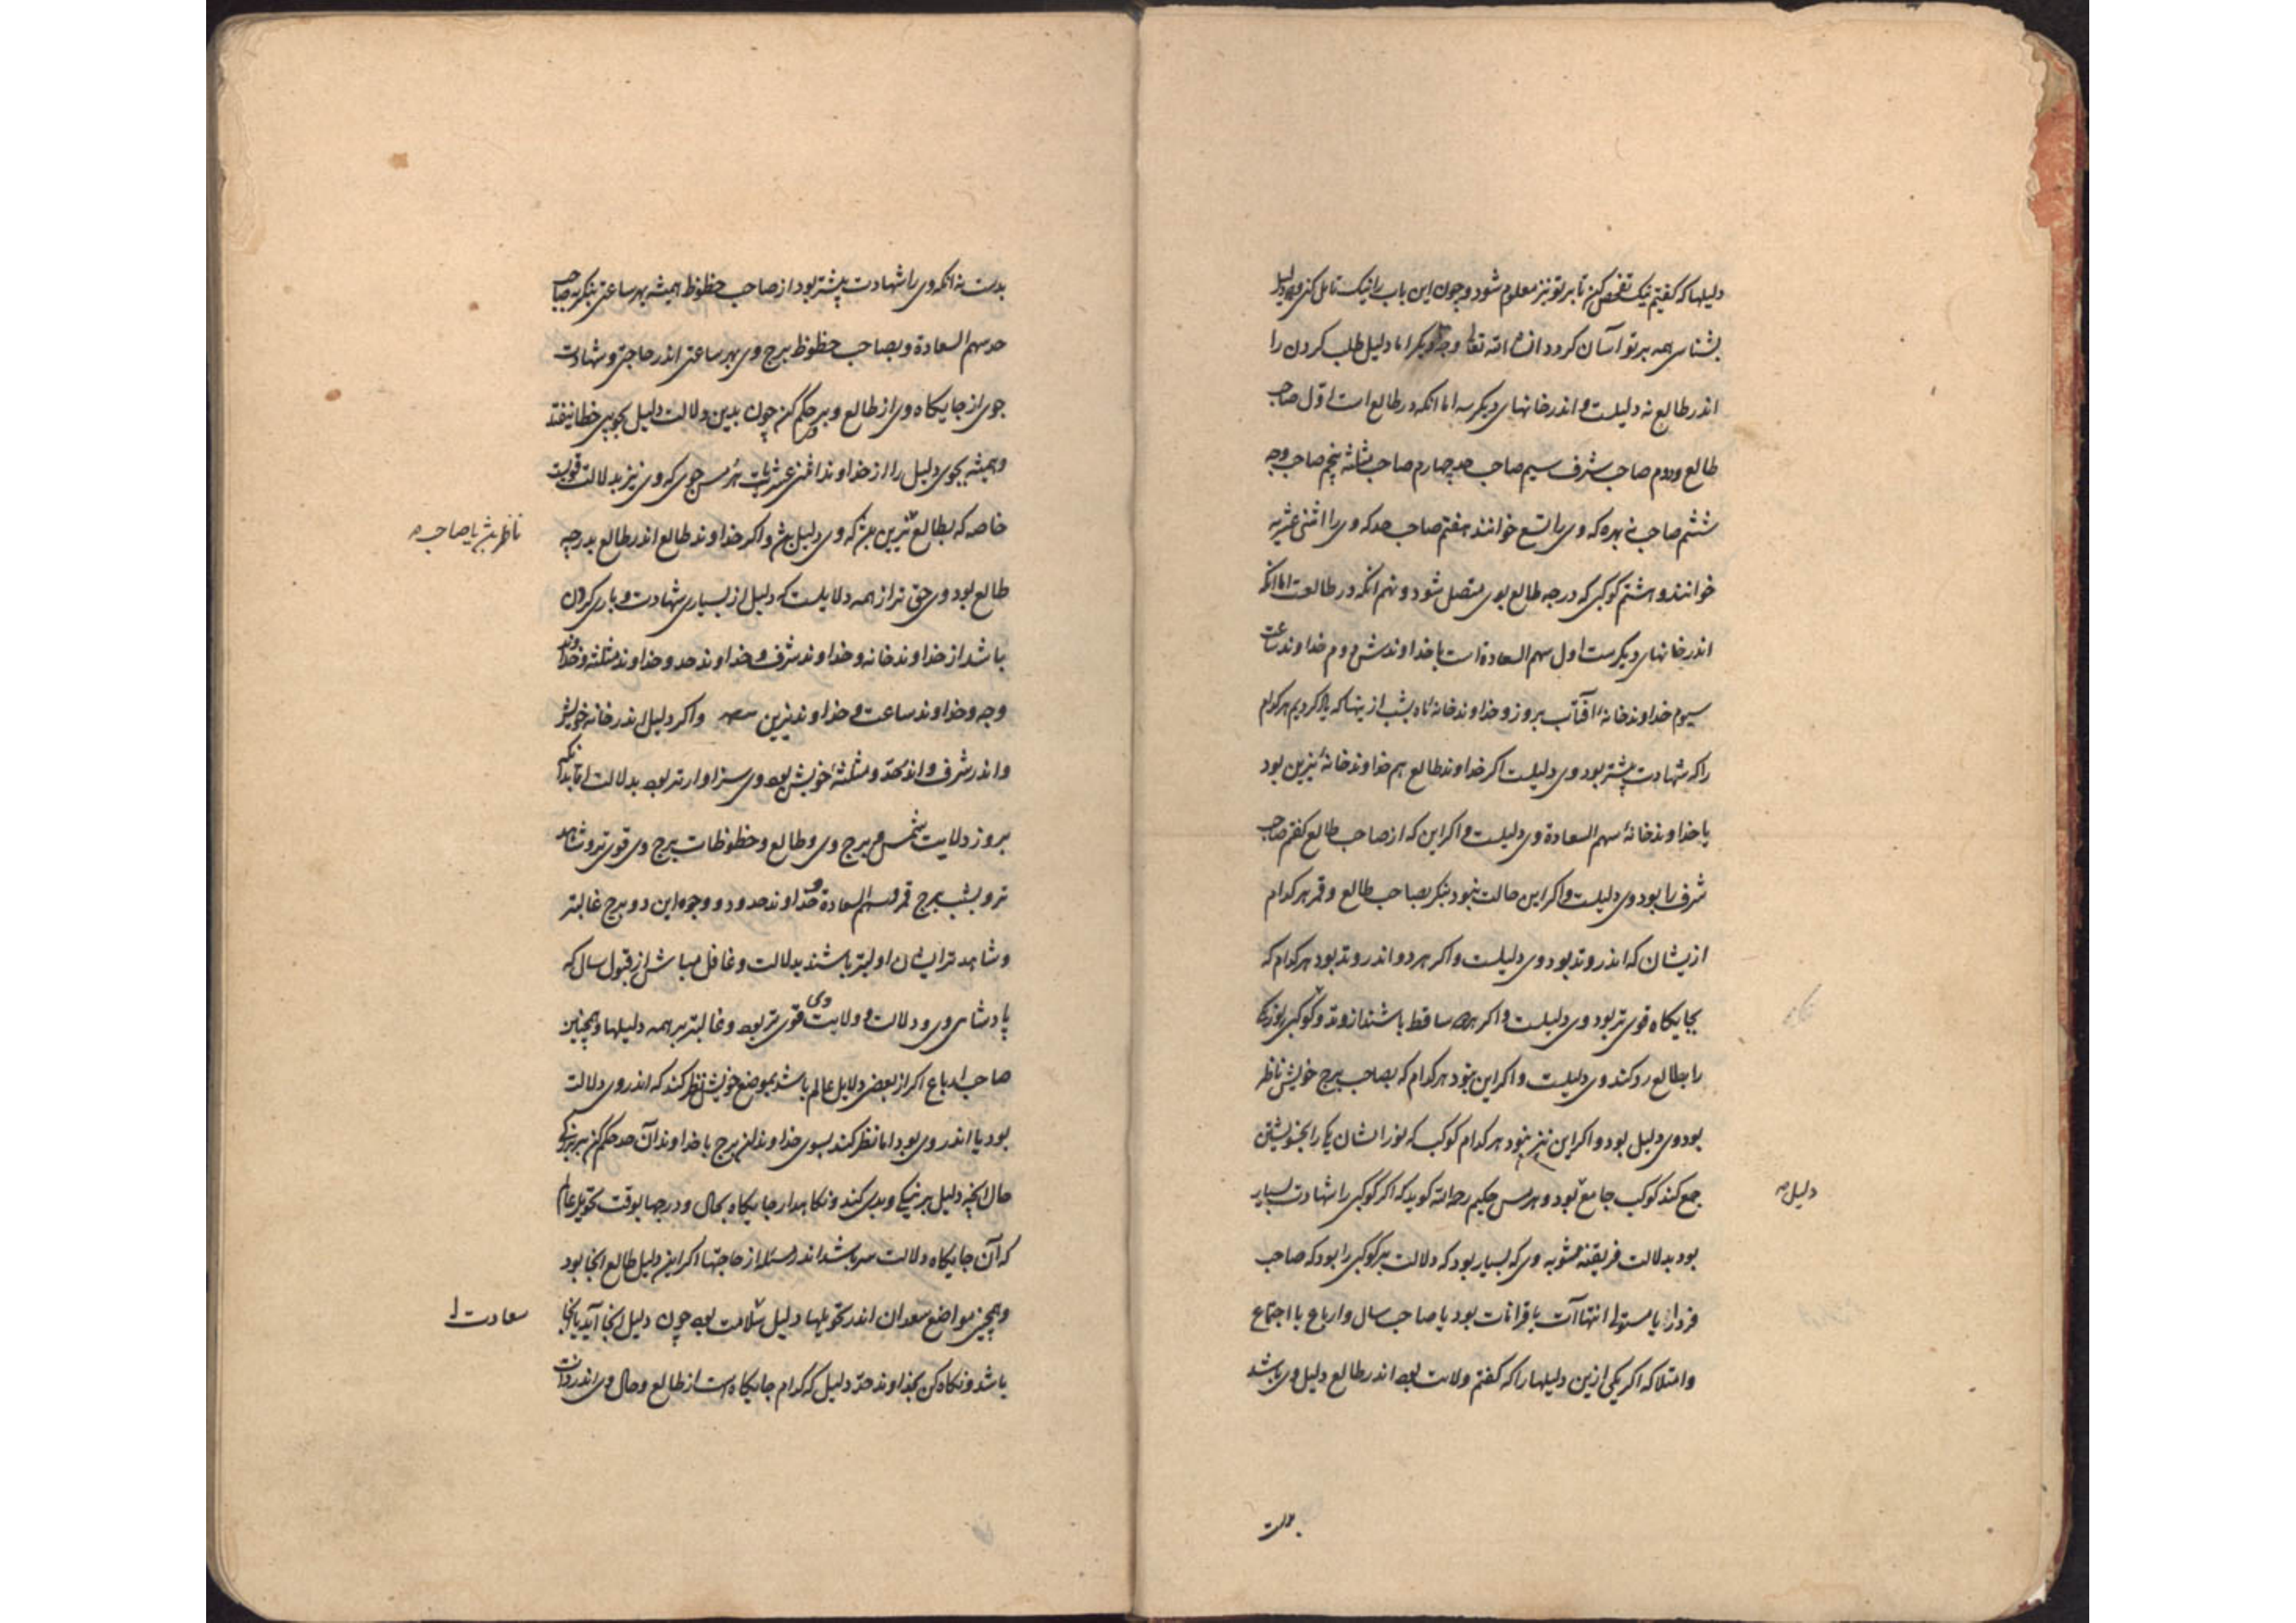 دلیلها که گفتیم نیک تفحص کن تا بر تو نیز معلوم شود و چون این باب را نیک تامل کنی و دلیل
بشناسی همه بر تو آسان کردد انشاء الله تعا وجه دیکر اما دلیل طلب کردن را
اندر طالع نه دلیلست و اندر خانهای دیکر سه اما انکه در طالع است اول صاحب
طالع و دوم صاحب شرف سیم صاحب حد چهارم صاحب مثلثه پنجم صاحب وجه
ششم صاحب نه بهره که وی را تسع خوانند هفتم صاحب حد که وی را اثنی عشریه
خوانند و هشتم کوکبی که درجه طالع بوی متصل شود و نهم انکه در طالعست اما انکه
اندر خانهای دیکرست اول سهم السعادة است با خداوندش دوم خداوند ساعت
سیوم خداوند خانهٔ آفتاب بروز و خداوند خانهٔ ماه بشب ازینها که یاد کردیم هر کدام
را که شهادت بیشتر بود وی دلیلست اکر خداوند طالع هم خداوند خانهٔ نیرین بود
یا خداوند خانهٔ سهم السعادة وی دلیلست و اکر این که از صاحب طالع کفتم صاحب
شرف را بود وی دلیلست و اکر این حالت نبود بنکر بصاحب طالع و قمر هر کدام
ازیشان که اندر وتد بود وی دلیلست و اکر هر دو اندر وتد بود هر کدام که
بجایکاه قوی تر بود وی دلیلست و اکر هر دو ساقط باشند از وتد و کوکبی بود که
را بطالع رد کند وی دلیلست و اکر این نبود هر کدام که بصاحب برج خویش ناظر
بود وی دلیل بود و اکر این نیز نبود هر کدام کوکب که نور ایشان یکی را بخویشتن
جمع کند کوکب جامع بود و هرمس حکیم رحمه الله کوید که اکر کوکبی را شهادت بسیار
دلیل صح
بود بدلالت فریفته مشو به وی که بسیار بود که دلالت بر کوکبی را بود که صاحب
فردار یا مستولی انتهاآت یا قرانات بود یا صاحب سال و ارباع یا اجتماع
و امتلا که اکر یکی ازین دلیلها را که کفتم ولایت بود اندر طالع دلیل وی باشد
بدست نه انکه وی را شهادت بیشتر بود از صاحب حظوظ همیشه بهر ساعتی بنکر به صاحب
حد سهم السعادة و بصاحب حظوظ برج وی بهر ساعتی اندر حاجتی و شهادت
جوی از جایکاه وی از طالع و بر حکم کن چون بدین دلالت دلیل بجویی خطا نیفتد
و همیشه بجوی دلیل را از خداوند اثنی عشریات هرمس جوی که وی نیز بدلالت قویست
خاصه که بطالع نیرین که وی دلیل بش و اکر خداوند طالع اندر طالع بدرجه
ناظر بش یا صاحب ه
طالع بود وی حق تر از همه دلایلست که دلیل از بسیاری شهادت و یاری کردن
باشد از خداوند خانه و خداوند شرف و خداوند حد و خداوند مثلثه و خداوند
وجه و خداوند ساعت و خداوند نیرین و اکر دلیل اندر خانه خویش
و اندر شرف و اندر حد و مثلثهٔ خویش بود وی سزاوارتر بود بدلالت
بروز ولایت شمس و برج وی و طالع و حظوظات برج وی قوی تر و شاهد
تر و بشب برج قمر و سهم السعادة و خداوند حدود و وجوه این دو برج غالبتر
و شاهد تر ایشان اولیتر باشند بدلالت و غافل مباش از قبول سال که
پادشاهی وی و دلالت و ولایت وی قوی تر بود و غالبتر بر همه دلیلها و همچنین
صاحب ارباع اکر از بعضی دلایل عالم باشد بموضع خویش نظر کند که اندر وی دلالت
بود یا اندر وی بود اما نظر کند بسوی خداوند ان برج یا خداوند آن حد حکم کن
حال انچه دلیل بر نیکی و بدی کند و نکاهدار جایکاه بحال و درجها بوقت تحویل عالم
که آن جایکاه دلالت باشد اندر مسئله از حاجتها اکر این دلیل طالع انجا بود
و همچنین مواضع سعدان اندر تحویلها دلیل سلامت بود چون دلیل انجا آید یا انجا
سعادت
باشد و نکاه کن بخداوند حد دلیل که کدام جایکاه است از طالع و حال وی اندر